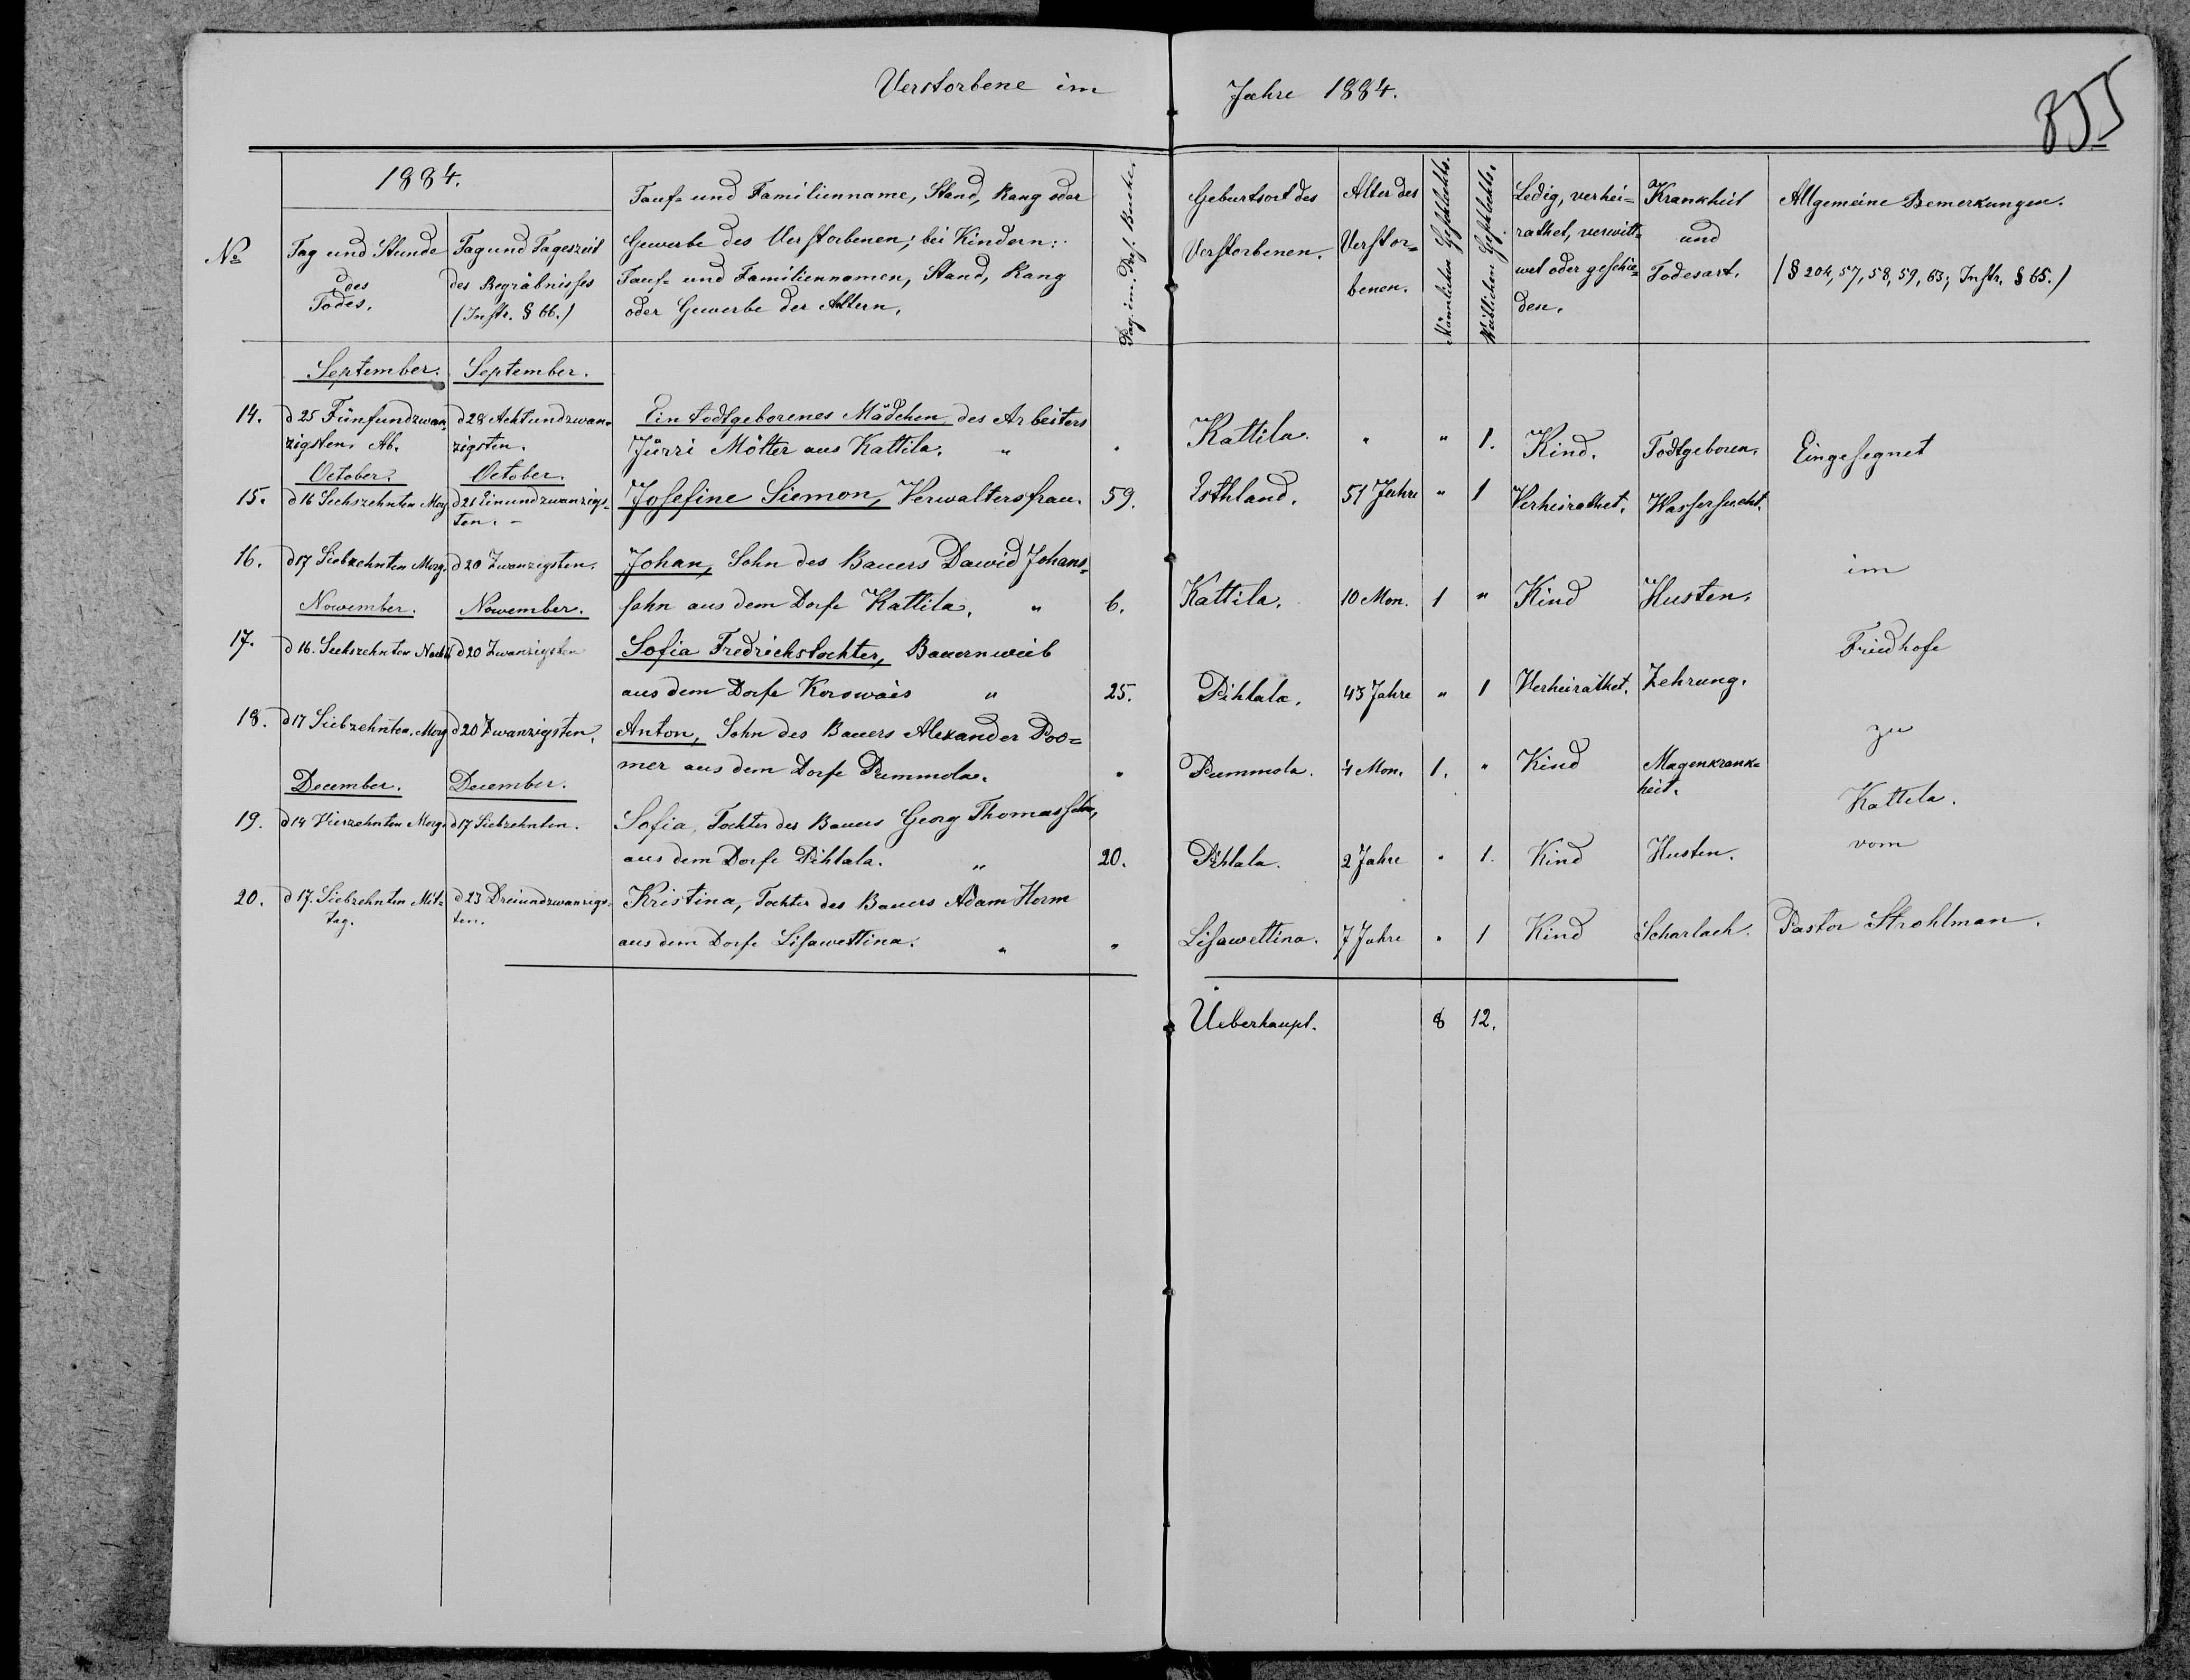 Verstorbene im Jahre 1884.
855
1884.
No
Tag und Stunde
des
Todes.
Tag und Tageszeit
des Begräbnisses
(Instr. § 66.)
Tauf- und Familienname, Stand, Rang oder
Gewerbe des Verstorbenen; bei Kindern:
Tauf- und Familiennamen, Stand, Rang
oder Gewerbe der Altern.
Pag. im. Buche.
Geburtsort des
Verstorbenen.
Alter des
Verstor=
benen.
Männlichen Geschlechts.
Weiblichen Geschlechts.
Ledig, verhei=
rathet, verwitt=
wet oder geschie=
den.
Krankheit
und
Todesart.
Allgemeine Bemerkungen.
(§ 204, 57, 58, 59, 63; Instr. § 65.)
September. September.
14. d 25 Fünfundzwan= d 28 Achtundzwan= Ein todtgeborenes Mädchen des Arbeiters
zigsten Ab. zigsten. Jürri Mötter aus Kattila. " " Kattila. " " 1. Kind. Todtgeboren. Eingesegnet
October. October.
15. d 16 Sechszehnten Morg d 21 Einundzwanzigs= Josefine Siemon, Verwaltersfrau. 59. Esthland. 51 Jahre " 1 Verheirathet. Wassersucht.
ten. -
16. d 17 Siebzehnten Morg. d 20 Zwanzigsten. Johan, Sohn des Bauers Dawid Johans= im
November. November. sohn aus dem Dorfe Kattila. " 6. Kattila. 10 Mon. 1 " Kind Husten.
17. d 16. Sechszehnten Nacht d 20 Zwanzigsten Sofia Fredrichstochter, Bauernweib Friedhofe
aus dem Dorfe Korswais " 25. Pihlala. 43 Jahre " 1 Verheirathet. Zehrung.
18. d 17 Siebzehnten. Morg d 20 Zwanzigsten. Anton, Sohn des Bauers Alexander Poo= zu
mer aus dem Dorfe Pummola. " Pummola. 4 Mon. 1. " Kind Magenkrank=
heit.
December. December. Kattila.
19. d 14 Vierzehnten Morg. d 17 Siebzehnten. Sofia, Tochter des Bauers Georg Thomassohn,
aus dem Dorfe Pihlala. " 20. Pihlala. 2 Jahre " 1. Kind Husten. vom
20. d 17. Siebzehnten Mit= d 23 Dreiundzwanzigs= Kristina, Tochter des Bauers Adam Horm
tag. ten.
aus dem Dorfe Lisawettina. " " Lisawettina. 7 Jahre " 1 Kind Scharlach. Pastor Strohlman.
Ueberhaupt. 8 12.